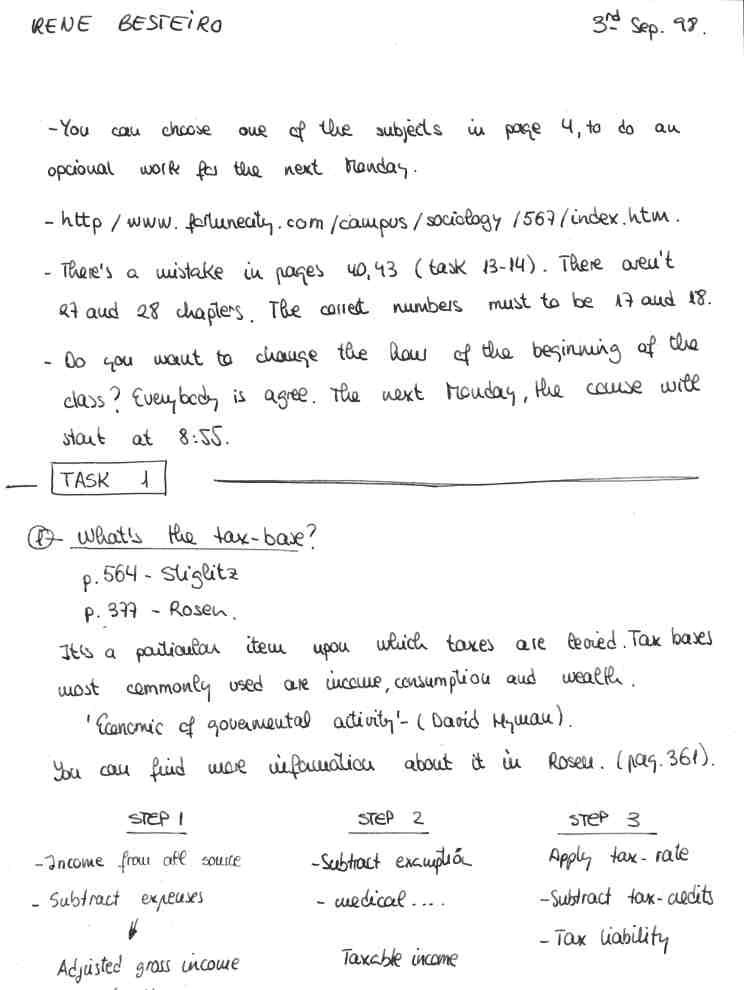 RENE BESTEIRO 3rd Sep. 98.
- You can choose one of the subjects in page 4, to do an
opcional work for the next Monday.
- http / www. fortunecity. com / campus / sociology / 567 / index. htm.
- There's a mistake in pages 40, 43 (task 13-14). There aren't
27 and 28 chapters. The correct numbers must to be 17 and 18.
- Do you want to change the hour of the beginning of the
class? Everybody is agree. The next Monday, the course will
start at 8:55.
TASK 1
1)- What's the tax-base?
p. 564 - Stiglitz
p. 377 - Rosen.
It's a particular item upon which taxes are levied. Tax bases
most commonly used are income, consumption and wealth.
'Economic of governmental activity' - (David Hyman).
You can find more information about it in Rosen. (pag. 361).
STEP 1 STEP 2 STEP 3
- Income from all source - Subtract examption Apply tax-rate
- Subtract expenses - medical .... - Subtract tax-credits
- Tax liability
Adjusted gross income Taxable income